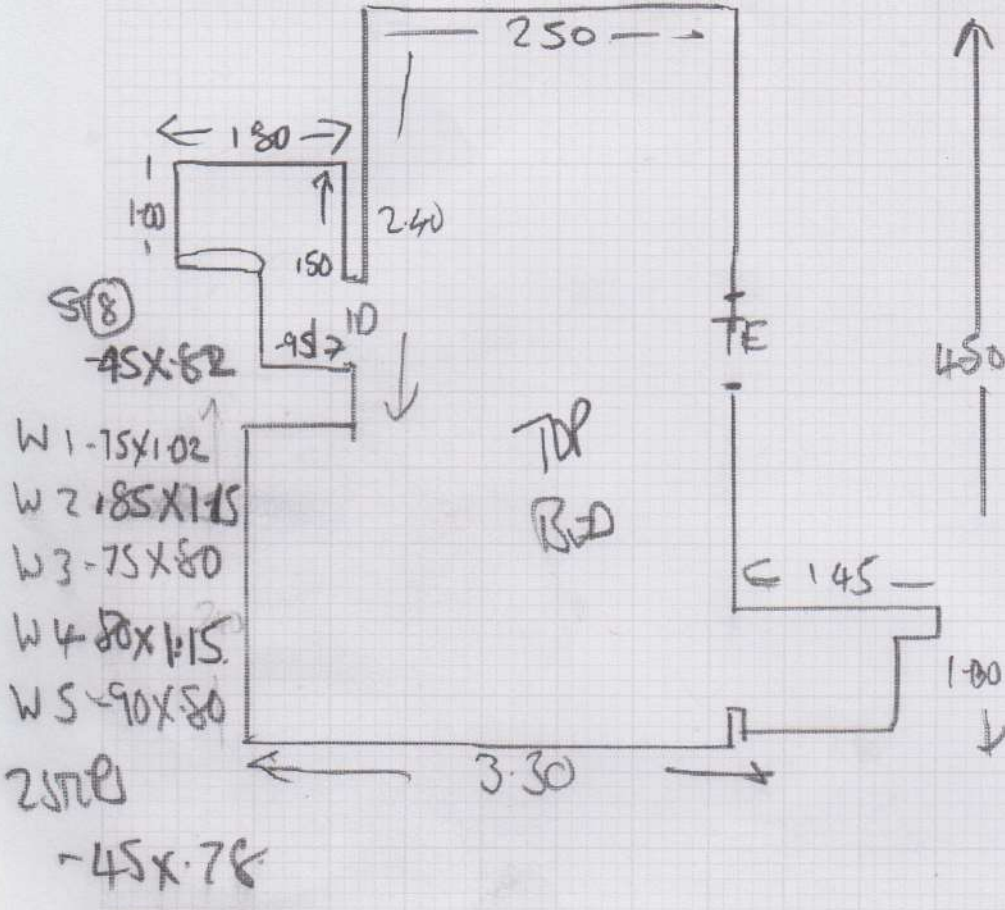 250
180
1.00
150
2.40
ST 8
.45X.82
.95
1D
TE
450
W1 .75X1.02
W2 .85X1.15
W3 .75X.80
W4 .80X1.15
W5 .90X.80
TOP
BED
145
1.00
3.30
.45X.78